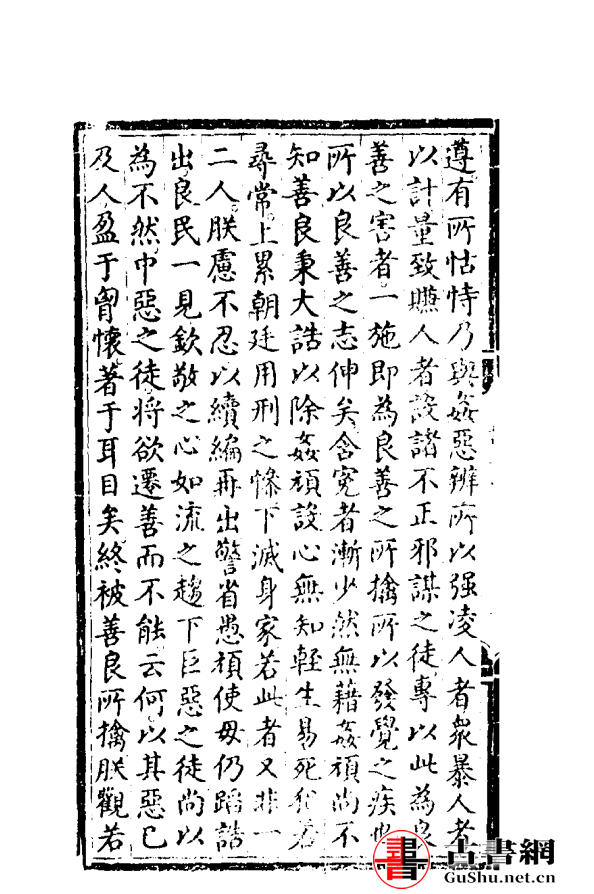 遵有所怙恃乃與姦惡辨所以强凌人者衆暴人者
以計量致贓人者設諸不正邪謀之徒專以此為良
善之害者一施即為良善之所擒所以發覺之疾也
所以良善之志伸矣含寃者漸少然無藉姦頑尚不
知善良秉大誥以除姦頑設心無知輕生易死
尋常上累朝廷用刑之條下滅身家若此者又非一
二人朕慮不忍以續編再出警省愚頑使毋仍蹈誥
出良民一見欽敬之心如流之趨下巨惡之徒尚以
為不然中惡之徒將欲遷善而不能云何以其惡已
及人盈于胷懷著于耳目矣終被善良所擒朕觀若
書 古書網
GuShu.net.cn